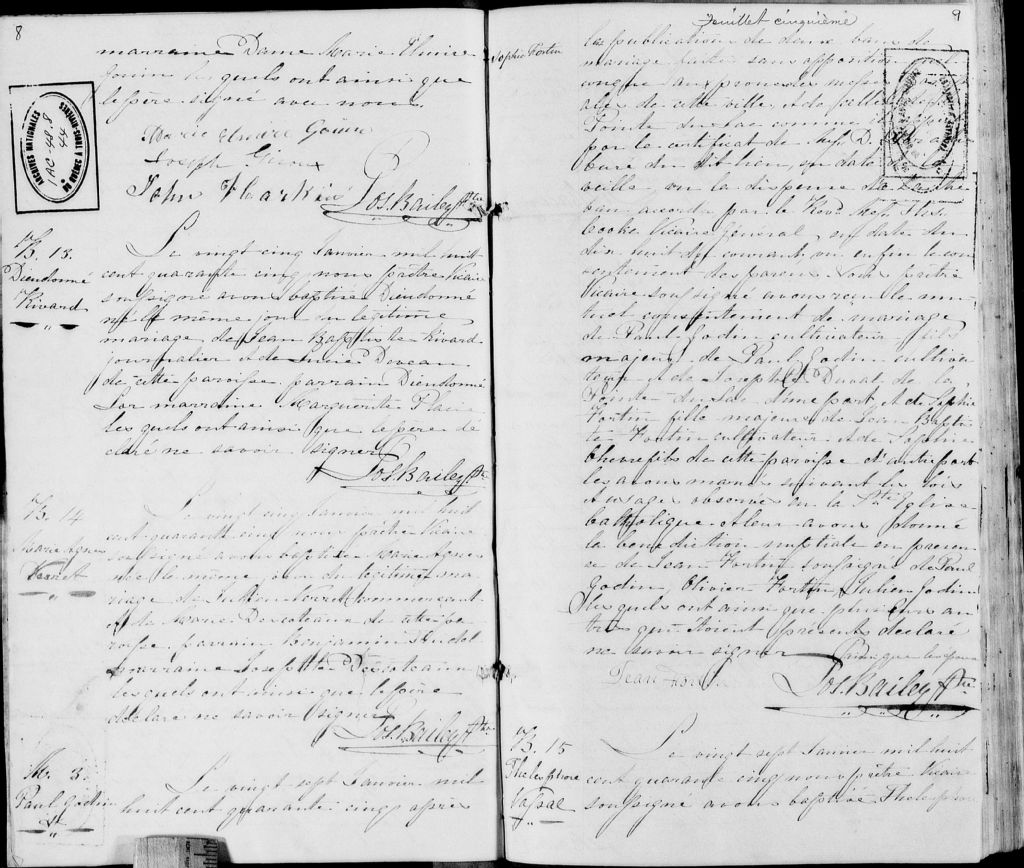 8
marraine Dame Marie
les quels ont ainsi que
le père signé avec nous
ARCHIVES NATIONALES
1 AC-48-8
44
DU QUÉBEC À TROIS-RIVIÈRES
Joseph
John
Jos. Bailey Ptre
B. 13.
Dieudonné
Rivard
Le vingt cinq Janvier mil huit
cent quarante cinq nous prêtre Vicaire
soussigné avons baptisé Dieudonné
né le même jour du légitime
mariage de Jean Baptiste Rivard
journalier et de
de cette paroisse parrain Dieudonné
marraine Marguerite
les quels ont ainsi que le père dé
claré ne savoir signer
Jos. Bailey Ptre
B. 14
Marie Agnes
Verret
Le vingt cinq Janvier mil huit
cent quarante cinq nous prêtre Vicaire
soussigné avons baptisé Marie Agnes
née le même jour du légitime ma
riage de Julien Verret commerçant
et de Marie Decoteaux de cette pa
roisse, parrain Benjamin
marraine Josephte Decoteaux
les quels ont ainsi que le père
déclaré ne savoir signer
Jos. Bailey Ptre
M. 3
Paul Godin
&
Le vingt sept Janvier mil
huit cent quarante cinq après
Feuillet cinquième
9
Sophie Fortin
la publication de deux bans de
mariage faite sans opposition
aux prones des messes
de cette ville, et de celle de la
Pointe du Lac comme il appert
par le certificat de
Curé du dit lieu, en date de la
veille, vu la dispense du
ban accordée par le Revd. Mess. Ths.
Cooke Vicaire Général, en date du
dix huit du courant, vu enfin le con
sentement des parens Nous prêtre
Vicaire soussigné avons reçu le mu
tuel consentement de mariage
de Paul Godin cultivateur fils
majeur de Paul Godin cultiva
teur et de Josephte Duval de la
Pointe du Lac d'une part, et de Sophie
Fortin fille majeure de Jean Baptis
te Fortin cultivateur et de Sophie
Chevrefils de cette paroisse d'autre part
les avons mariés suivant les lois
et usages observés en la Ste. Eglise
Catholique et leur avons donné
la bénédiction nuptiale en présen
ce de Jean Fortin soussigné de Paul
Godin, Olivier Fortin, Julien Godin
les quels ont ainsi que plusieurs au
tres qui étoient présents déclaré
ne savoir signer
Jean Fortin
Jos. Bailey Ptre
B. 15
Thelesphore
Vassal
Le vingt sept Janvier mil huit
cent quarante cinq nous prêtre Vicaire
soussigné avons baptisé Thelesphore